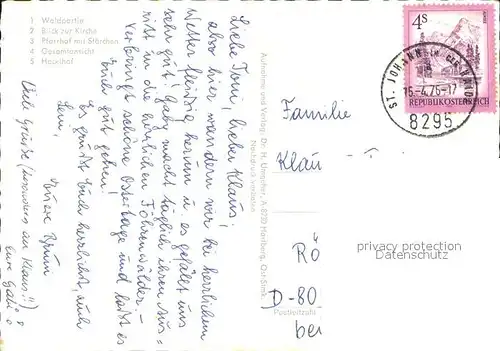 1 Waldpartie
2 Blick zur Kirche
3 Pfarrhof mit Störchen
4 Gesamtansicht
5 Hauslhof
Liebe Toni, lieber Klaus!
also hier wandern wir bei herrlichem
Wetter fleißig herum u. es gefällt uns
sehr gut! Gaby macht täglich ihren Aus-
ritt in die herrlichen Föhrenwälder –
Verbringt schöne Ostertage und laßt es
Euch gut gehen!
Es grüßt Euch herzlichst, auch
Eure
Viele Grüsse (besonders an Klaus!!)
Eure Gabi
Aufnahme und Verlag: Dr. H. Umscher, A-8230 Hartberg, Ost-Stmk.
Nachdruck verboten
4S
REPUBLIK ÖSTERREICH
ST. JOHANN
15.-4.76-17
8295
Familie
Klau
Rö
D-80
bei
Postleitzahl
privacy protection
Datenschutz